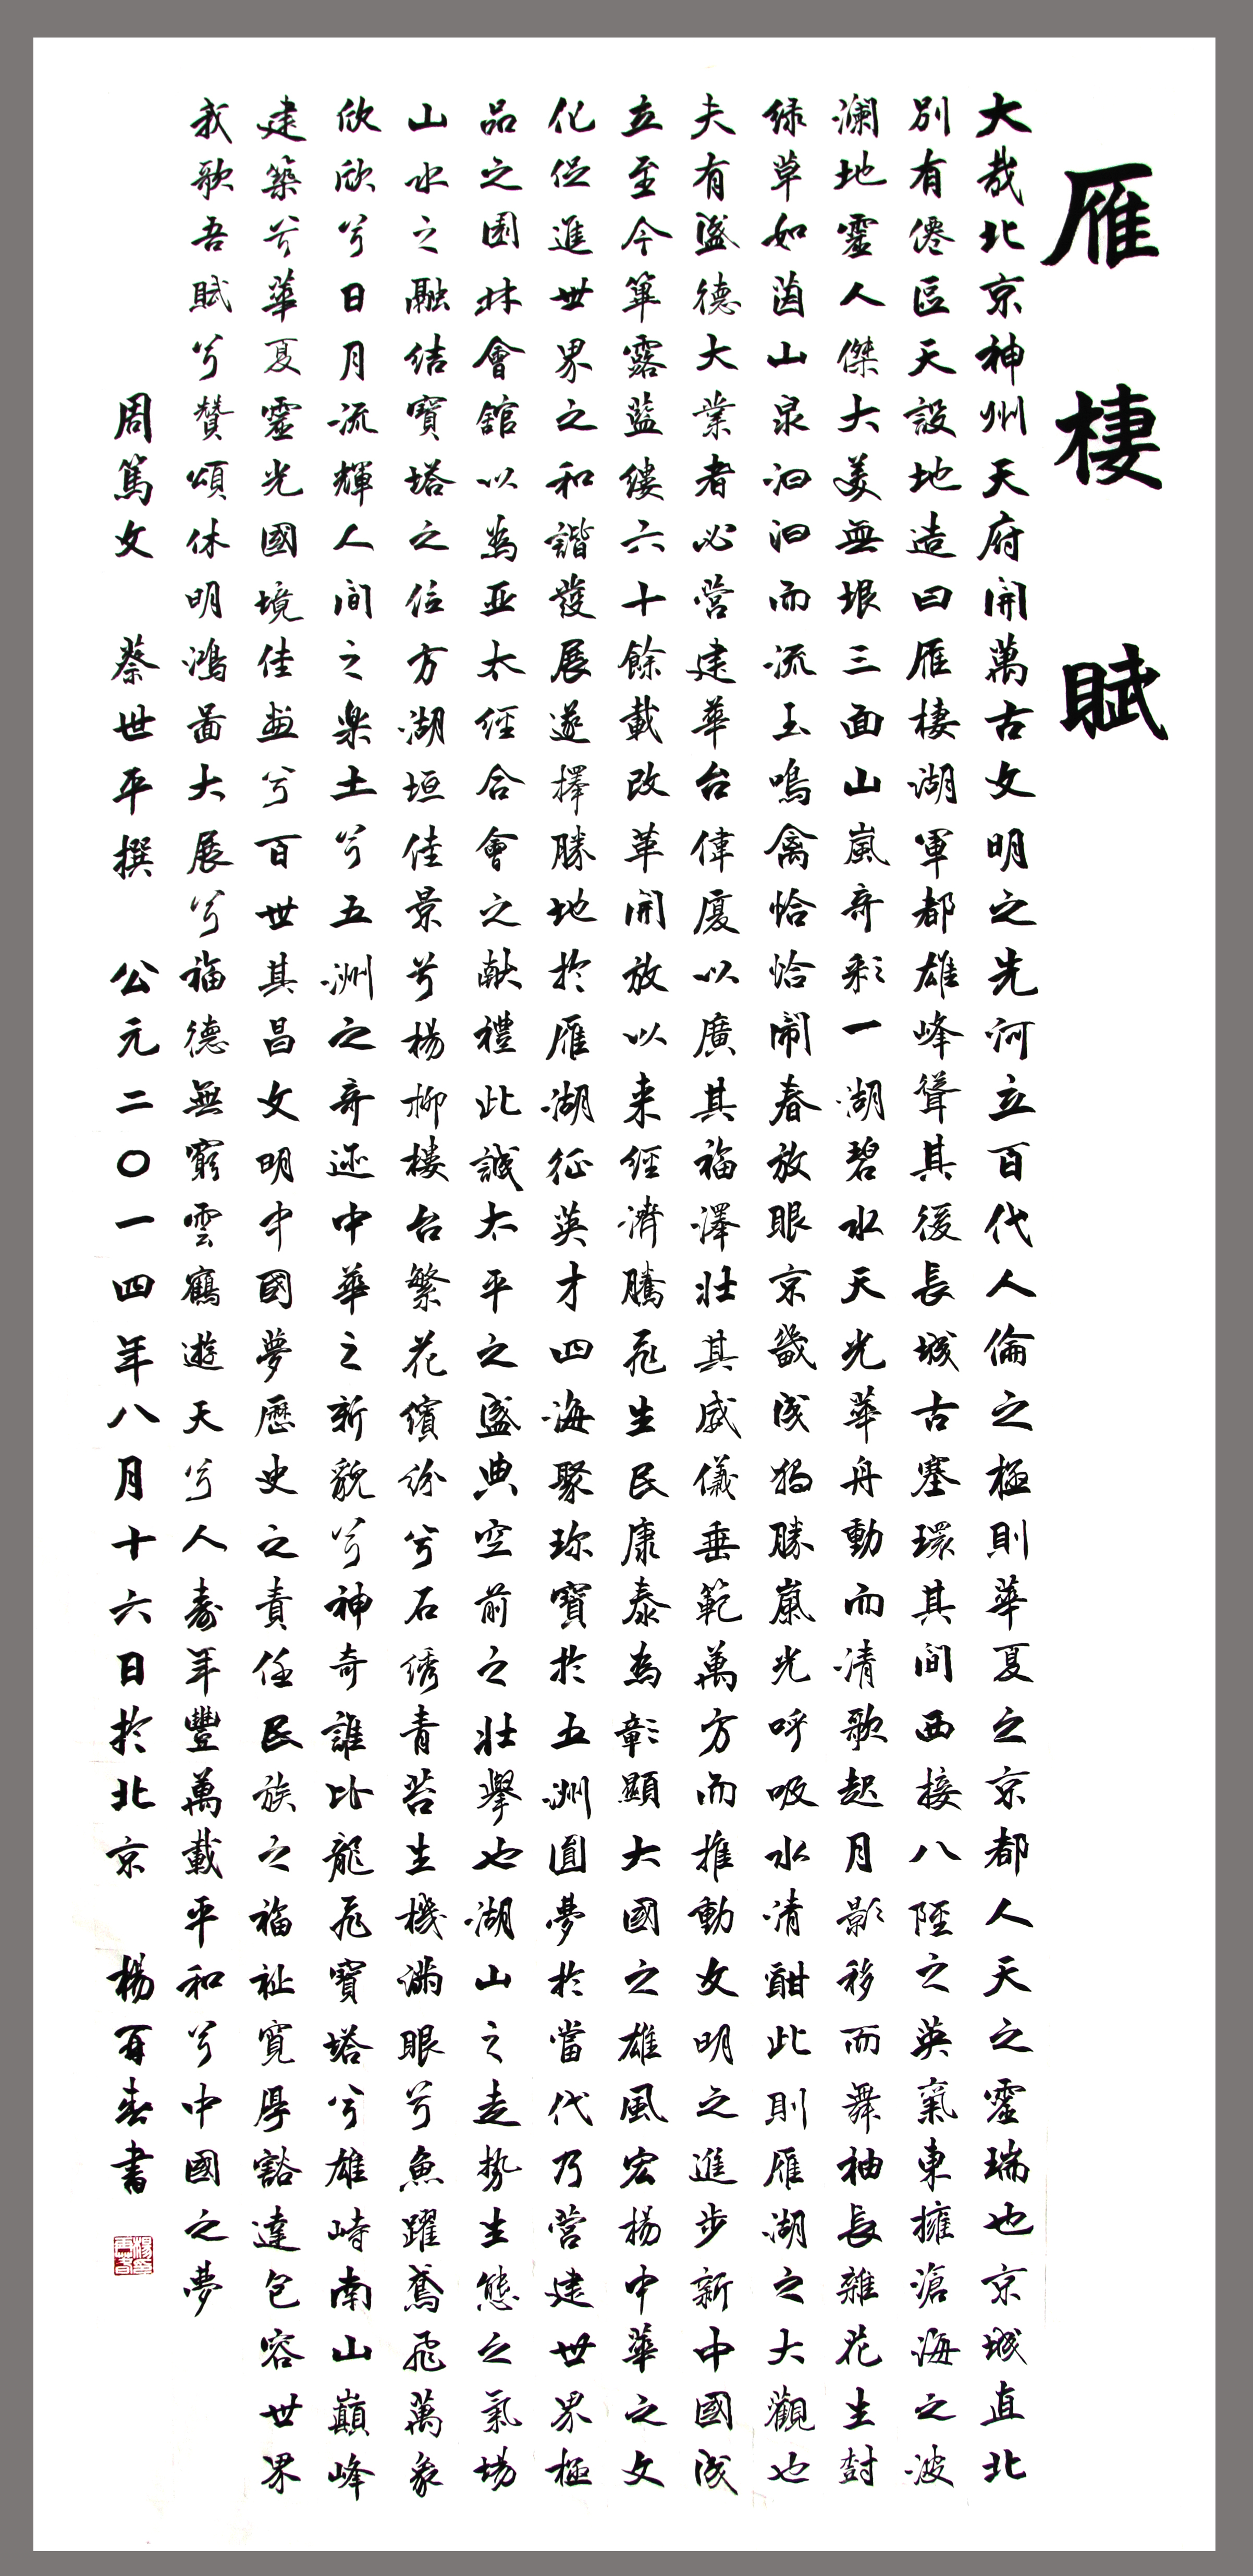 雁棲賦
大哉北京神州天府開萬古文明之先河立百代人倫之極則華夏之京都人天之靈瑞也京城直北
別有僊區天設地造曰雁棲湖軍都雄峰聳其後長城古塞環其間西接八陘之英氣東擁滄海之波
瀾地靈人傑大美無垠三面山嵐奇彩一湖碧水天光華舟動而清歌起月影移而舞袖長雜花生封
绿草如茵山泉汩汩而流玉鳴禽恰恰鬧春放眼京畿成獨勝嵐光呼吸水清酣此則雁湖之大觀也
夫有盛德大業者必營建華台偉廈以廣其福澤壯其威儀垂範萬方而推動文明之進步新中國成
立至今篳露藍縷六十餘載改革開放以来經濟騰飛生民康泰為彰顯大國之雄風宏楊中華之文
化促進世界之和諧發展遂擇勝地於雁湖征英才四海聚珍寶於五洲圓夢於當代乃營建世界極
品之園林會舘以為亚太經合會之献禮此誠太平之盛典空前之壯舉也湖山之走势生態之氣場
山水之融结寶塔之位方湖垣佳景兮楊柳樓台繁花缤纷兮石绣青苔生機满眼兮魚躍鳶飛萬象
欣欣兮日月流輝人间之楽土兮五洲之奇迹中華之新貌兮神奇誰比龍飛寶塔兮雄峙南山巔峰
建築兮華夏靈光國境佳画兮百世其昌文明中國夢歷史之責任民族之福祉寬厚豁達包容世界
我歌吾賦兮贊頌休明鴻啚大展兮福德無窮雲鶴遊天兮人壽年豐萬載平和兮中國之夢
周篤文 蔡世平撰 公元二〇一四年八月十六日於北京 楊再春書
楊再春印